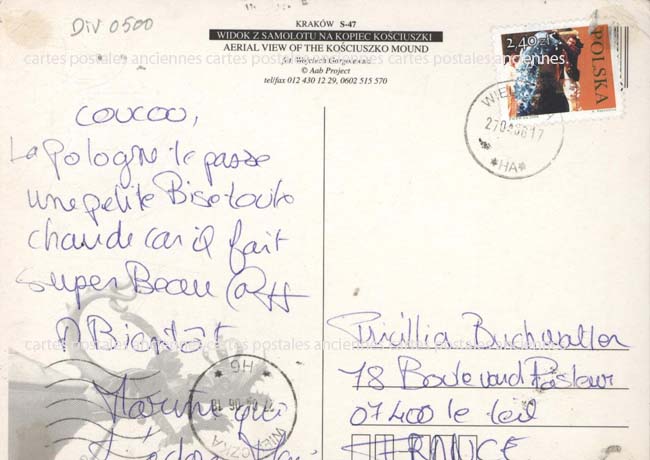 Div 0500
KRAKÓW S-47
WIDOK Z SAMOLOTU NA KOPIEC KOŚCIUSZKI
AERIAL VIEW OF THE KOŚCIUSZKO MOUND
fot. Wojciech Gorgolewski
© Aab Project
tel/fax 012 430 12 29, 0602 515 570
cartes postales anciennes cartes postales anciennes cartes postales anciennes
2,40 zł
POLSKA
WIEL
27 04 06 17
*HA*
COUCOU,
La Pologne te passe
une petite Bise toute
chaude car il fait
super Beau
A Bientôt
Marine qui
t'adore
cartes postales anciennes cartes postales anciennes cartes postales anciennes
Pricillia Buchwalter
78 Boulevard Pasteur
07400 le teil
FRANCE
HG
WIELICZKA